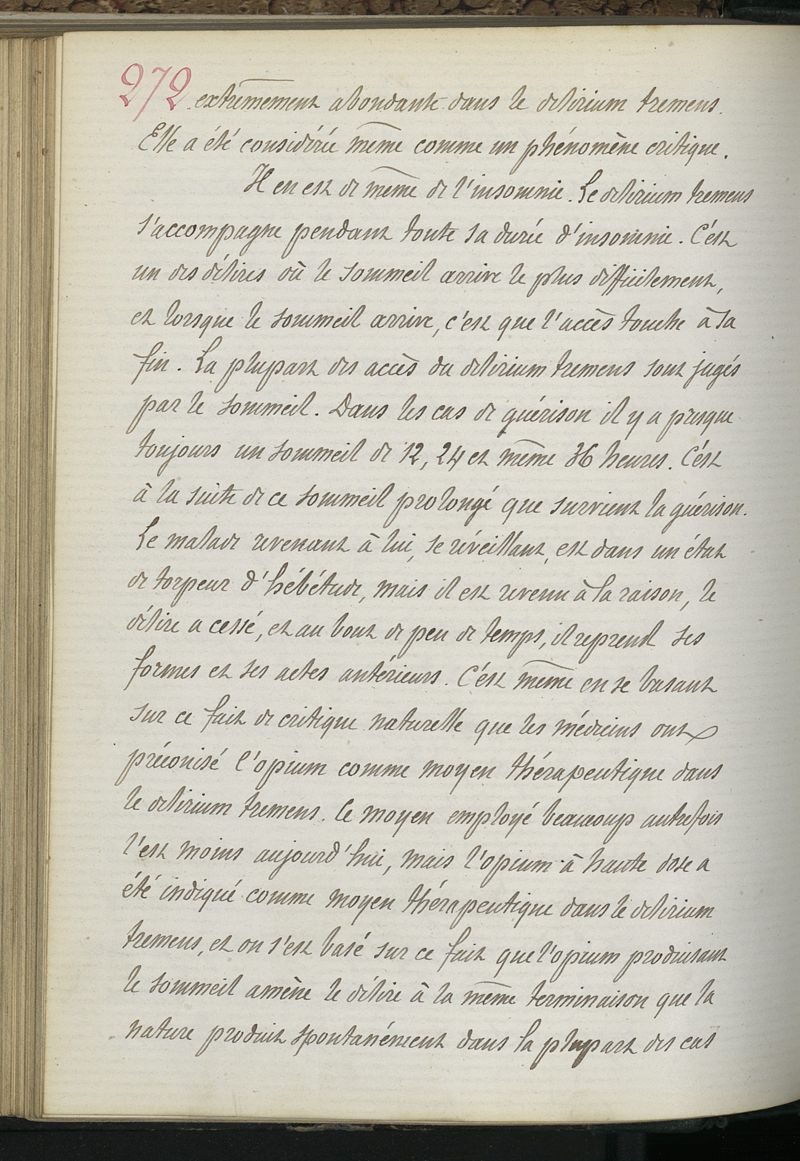 272 extrêmement abondante dans le delirium tremens.
Elle a été considérée même comme un phénomène critique.
Il en est de même de l'insomnie. Le delirium tremens
s'accompagne pendant toute sa durée d'insomnie. C'est
un des délires où le sommeil arrive le plus difficilement,
et lorsque le sommeil arrive, c'est que l'accès touche à sa
fin. La plupart des accès du delirium tremens sont jugés
par le sommeil. Dans les cas de guérison il y a presque
toujours un sommeil de 12, 24 et même 36 heures. C'est
à la suite de ce sommeil prolongé que survient la guérison.
Le malade revenant à lui, se réveillant, est dans un état
de torpeur d'hébétude, mais il est revenu à la raison, le
délire a cessé, et au bout de peu de temps, il reprend ses
formes et ses actes antérieurs. C'est même en se basant
sur ce fait de critique naturelle que les médecins ont
préconisé l'opium comme moyen thérapeutique dans
le delirium tremens. Ce moyen employé beaucoup autrefois
l'est moins aujourd'hui, mais l'opium à haute dose a
été indiqué comme moyen thérapeutique dans le delirium
tremens, et on s'est basé sur ce fait que l'opium produisant
le sommeil amène le délire à la même terminaison que la
nature produit spontanément dans la plupart des cas